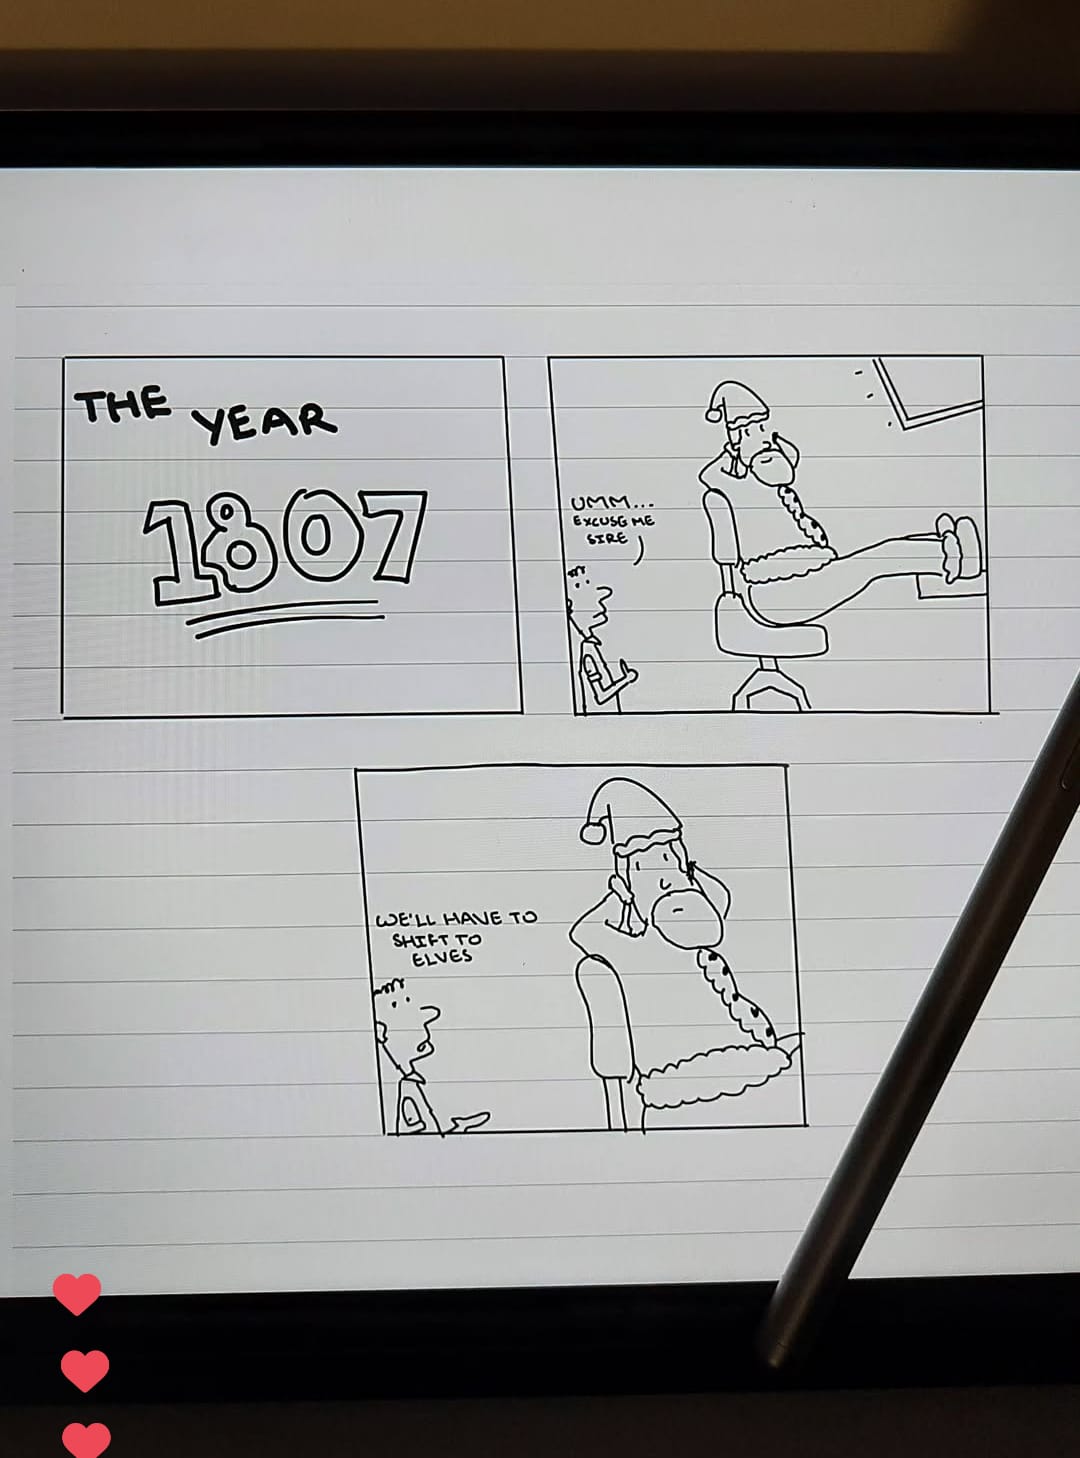 THE YEAR
1807
UMM...
EXCUSE ME
SIRE
WE'LL HAVE TO
SHIFT TO
ELVES